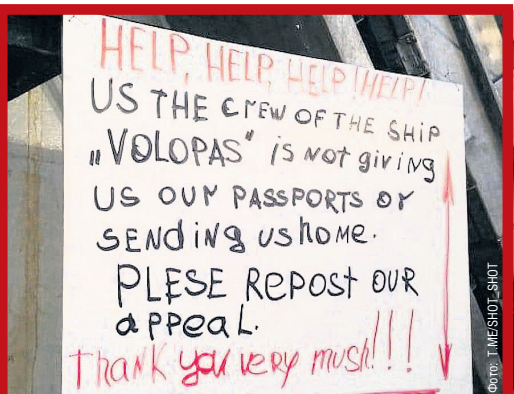 HELP, HELP, HELP! HELP!
US THE CREW OF THE SHIP
„VOLOPAS" is NOT giviNg
US OUR PASSPORTS OR
SENDiNg US HOME.
PLESE REPOSt OUR
APPEAL.
ThANK you VERY mush!!!
Фото: T.ME/SHOT_SHOT